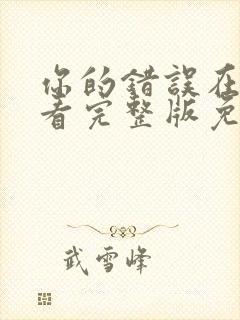 你的錯誤在
看完整版免
武雪峰